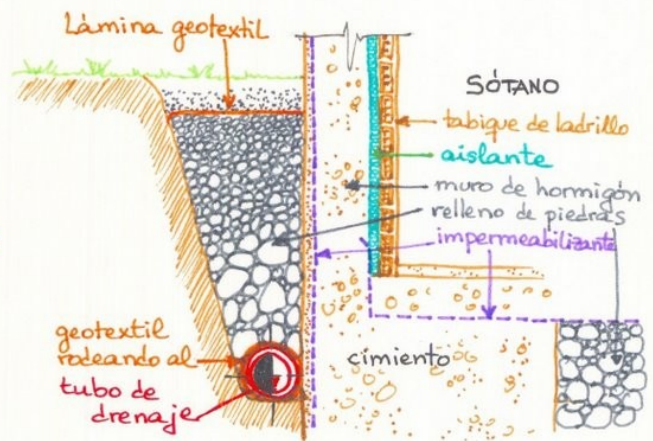 Lámina geotextil
SÓTANO
tabique de ladrillo
aislante
muro de hormigón
relleno de piedras
impermeabilizante
geotextil
rodeando al
tubo de
drenaje
cimiento